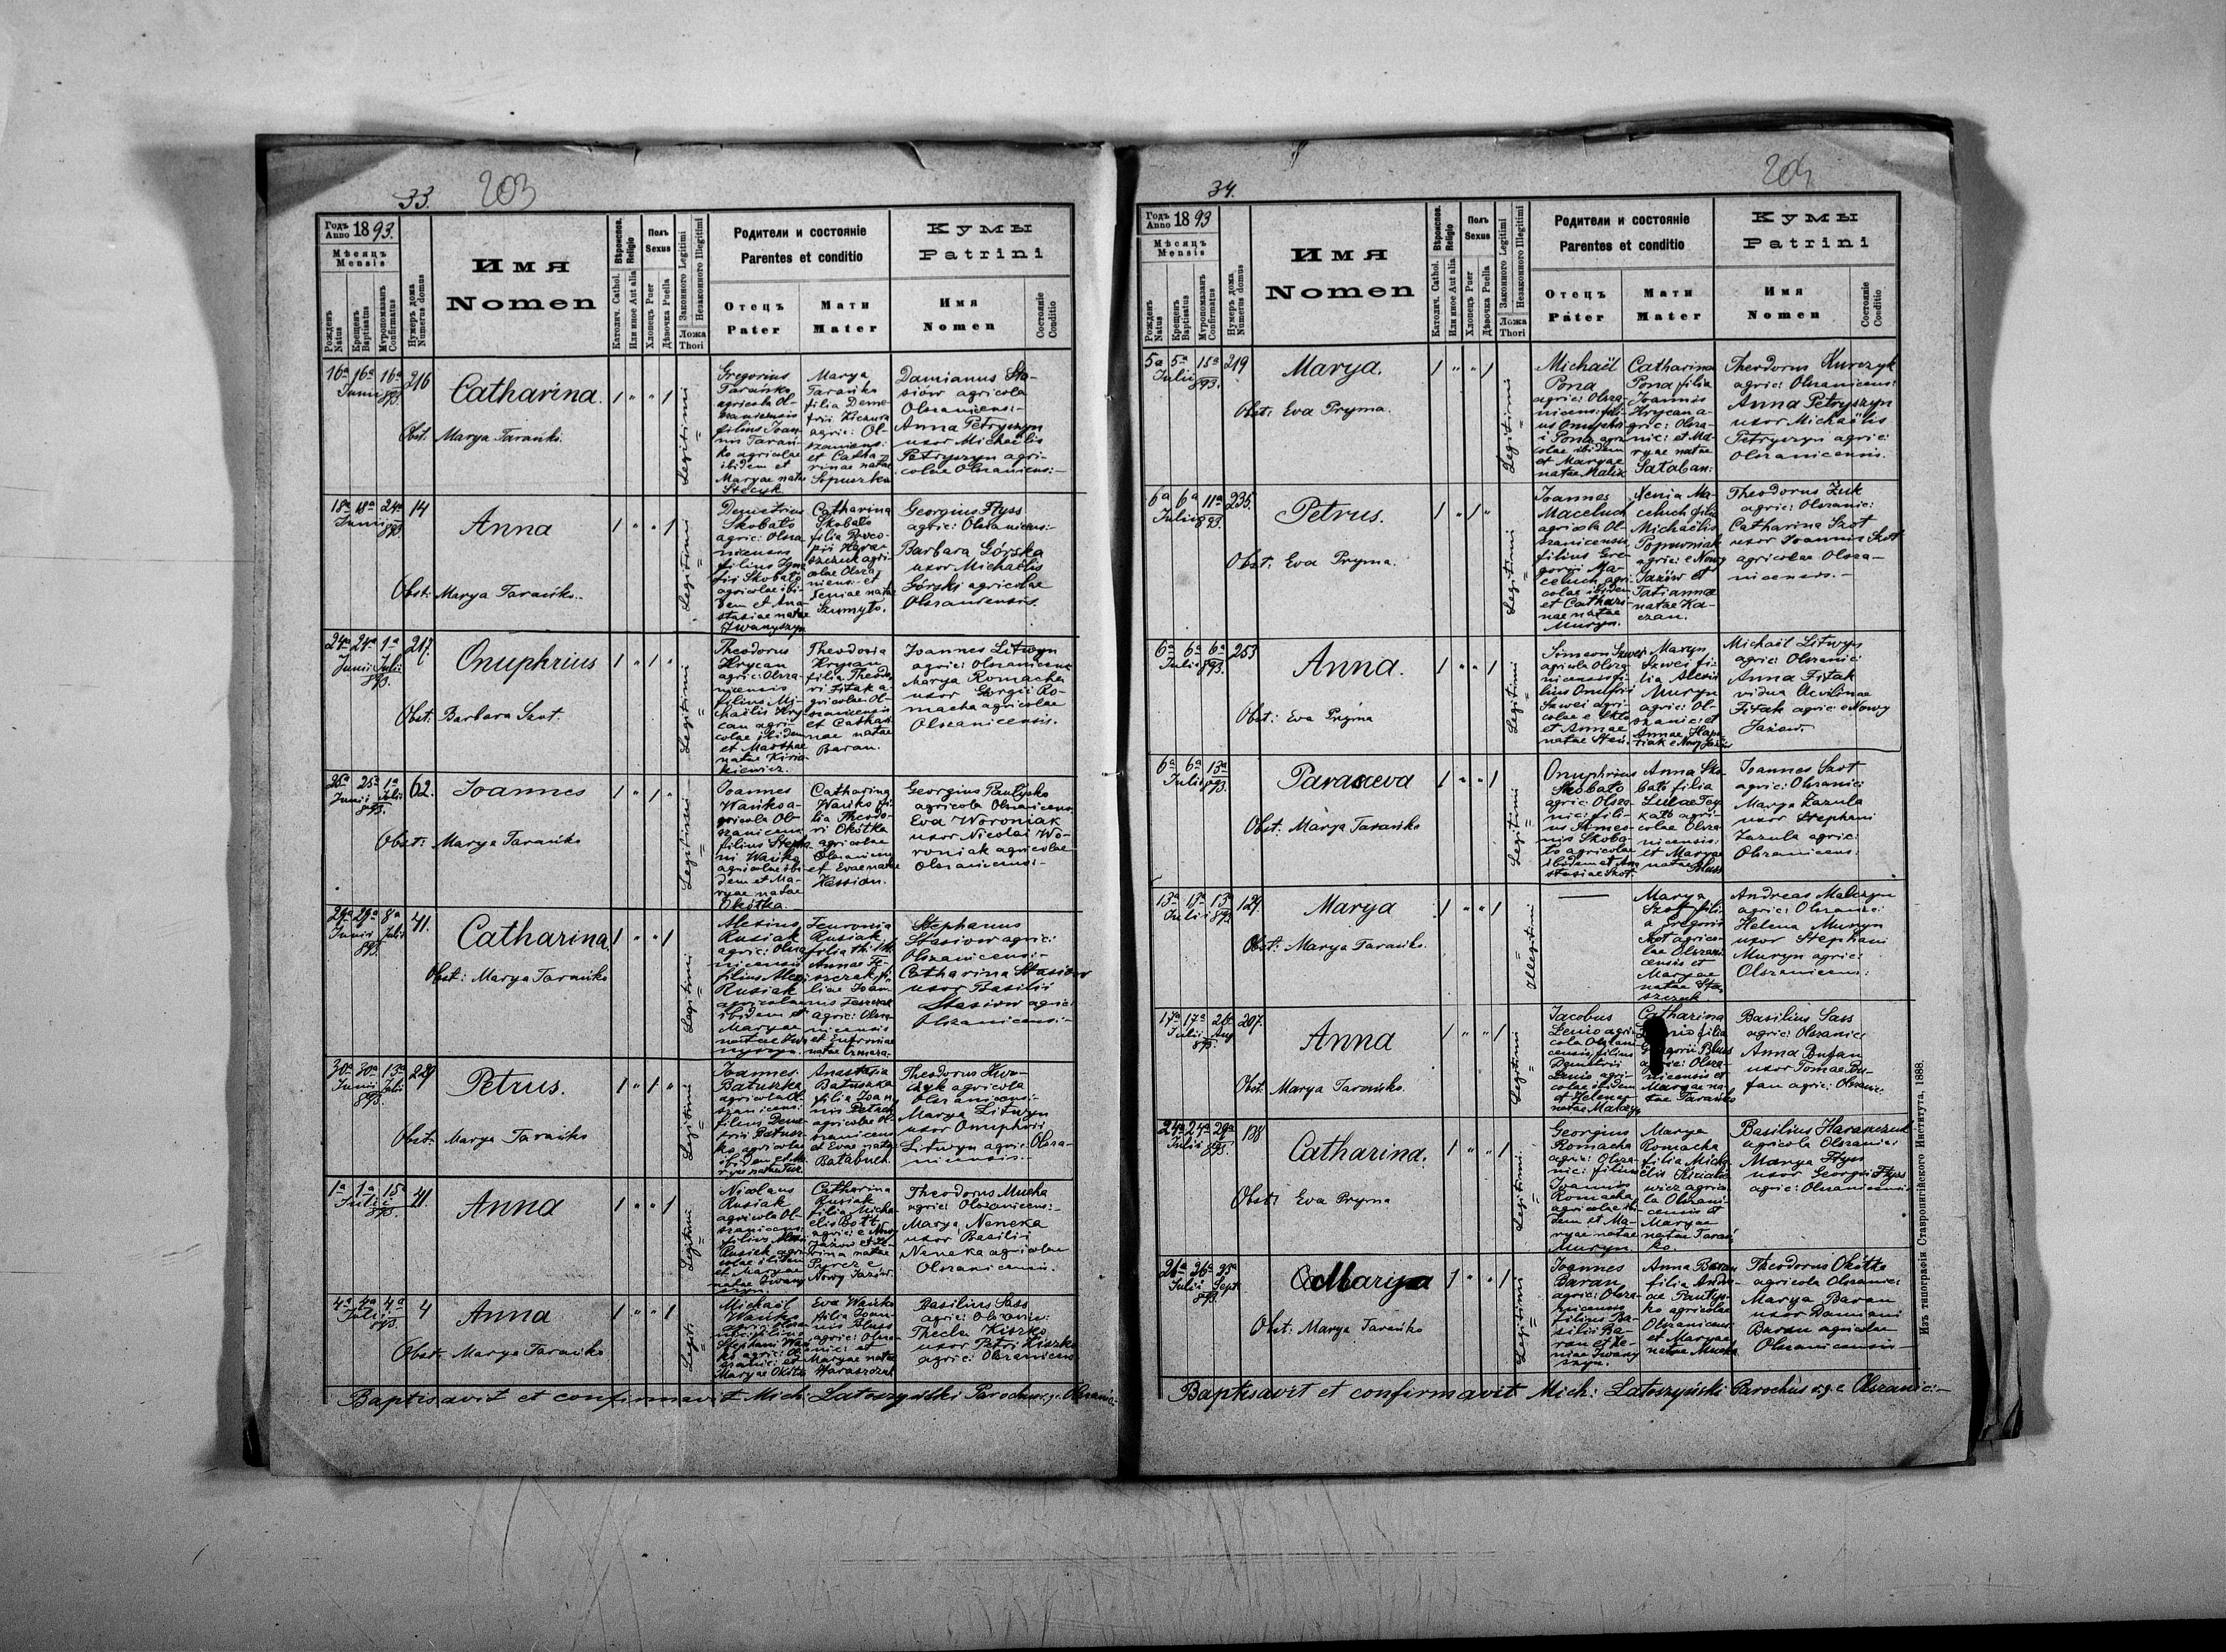 33. 203
Годъ Anno 1893.
Мѣсяцъ Mensis
Рожденъ Natus
Крещенъ Baptisatus
Мѵропомазанъ Confirmatus
Нумеръ дома Numerus domus
Имя
Nomen
Вѣроиспов. Religio
Католич. Cathol.
Или иное Aut alia
Полъ Sexus
Хлопецъ Puer
Дѣвочка Puella
Законного Legitimi
Незаконного Illegitimi
Ложа Thori
Родители и состоянiе
Parentes et conditio
Отецъ Pater
Мати Mater
Кумы
Patrini
Имя Nomen
Состоянiе Conditio
16a 16a 16a 216
Junii 893.
Catharina.
Obst. Marya Tarańki.
Legitimi
Gregorius
Tarańko
agricola Ol-
szanicensis
filius Joan-
nis Tarań-
ko agricolae
ibidem et
Maryae natae
Stecyk
Marya
Tarańko
filia Deme-
trii
agric: Ol-
szanicens:
et Catha-
rinae natae
Damianus Sta-
siów agricola
Olszanicens:-
Anna Petryszyn
uxor Michaëlis
Petryszyn agri-
colae Olszanicens:-
18a 18a 24a 14
Junii 893.
Anna
Obst: Marya Tarańko.
Legitimi
Demetrius
Skobało
agric: Olsza-
nicensis
filius
Skobało
agricolae ibi-
dem et Ana-
stasiae natae
Iwanyszyn
Catharina
Skobało
filia Proco-
pii
agri-
colae Olsza-
nicens: et
natae
Szumyło.
Georgius Ftyss
agric: Olszanicens:-
Barbara Górska
uxor Michaëlis
Górski agricolae
Olszanicensis.
24a 24a 1a 217.
Junii Julii
893.
Onuphrius
Obst. Barbara Szot.
Legitimi
Theodorus
Hrycan
agric: Olsza-
nicensis
filius Mi-
chaëlis Hry-
can agri-
colae ibidem
et Marthae
natae Kiria-
kiewicz.
Theodosia
Hrycan
filia Theodo-
ri Fitak a-
gricolae Ol-
szanicensis
et Cathari-
nae natae
Baran.
Joannes Litwyn
agric: Olszanicens
Marya Romacha
uxor Georgii Ro-
macha agricolae
Olszanicensis.
25a 25a 1a 62.
Junii Julii
893.
Joannes
Obst: Marya Tarańko
Legitimi
Joannes
Wańko a-
gricola Ol-
szanicens:
filius Stepha-
ni Wańko
agricolae ibi-
dem et Ma-
ryae natae
Okótka.
Catharina
Wańko fi-
lia Theodo-
ri Okótka
agricolae
Olszanicens
et Evae natae
Kassian.
Georgius Pautysko
agricola Olszanicens.
Eva Woroniak
uxor Nicolai Wo-
roniak agricolae
Olszanicens:-
29a 29a 8a 41.
Junii Julii
893.
Catharina
Obst: Marya Tarańko
Legitimi
Alexius
Rusiak
agric: Olsza-
nicensis
filius Alexii
Rusiak
agricolae
ibidem et
Maryae
natae
Feuronia
Rusiak
filia
Annae
agric: Olsza-
nicensis
Stephanus
Stasiow agric:
Olszanicensi:-
Catharina Stasiow
uxor Basilii
Stasiow agric:
Olszanicensi:-
30a 30a 13a 229
Junii Julii
893.
Petrus.
Obst: Marya Tarańko
Legitimi
Joannes
Batuszka
agricola Ol-
szanicens:
filius Deme-
trii Batusz-
ka agricolae
ibidem et Ma-
ryae natae
Anastasia
Batuszka
filia Joan-
nis
agricolae Ol-
szanicens
et Evae natae
Batabuch.
Theodorus
agricola
Olszanicens:-
Marya Litwyn
uxor Onuphrii
Litwyn agric: Olsza-
nicensis.-
1a 1a 15 41.
Julii
893.
Anna
Legitimi
Nicolaus
Rusiak
agricola Ol-
szanicens:
filius Alexii
Rusiak agri-
colae ibidem
et Maryae
natae Iwany-
szyn.
Catharina
Rusiak
filia Micha-
elis Bott
agric: e Nowy
Jazów et
natae
Pyrcz e
Nowy Jazów.
Theodorus Mucha
agric: Olszanicens:-
Marya Neneka
uxor Basilii
Neneka agricolae
Olszanicensis.
4a 4a 4a 4
Julii
893.
Anna
Obst: Marya Tarańko
Legiti
Michaël
Wańko
agric: Olsza-
nic: filius
Stephani Wań-
ko agric: Ol-
szanic: et
Maryae Okótka
Eva Wańko
filia Joan-
nis
agric: Olsza-
nic: et
Maryae natae
Haraszczuk
Basilius Sass
agric: Olszanic:
Thecla Kiszko
uxor Petri Kiszko
agric: Olszanicens
Baptisavit et confirmavit Mich: Latoszyński Parochus r.g.c. Olszanic:-
34. 204
Годъ Anno 1893
Мѣсяцъ Mensis
Рожденъ Natus
Крещенъ Baptisatus
Мѵропомазанъ Confirmatus
Нумеръ дома Numerus domus
Имя
Nomen
Вѣроиспов. Religio
Католич. Cathol.
Или иное Aut alia
Полъ Sexus
Хлопецъ Puer
Дѣвочка Puella
Законного Legitimi
Незаконного Illegitimi
Ложа Thori
Родители и состоянiе
Parentes et conditio
Отецъ Pater
Мати Mater
Кумы
Patrini
Имя Nomen
Состоянiе Conditio
5a 5a 15a 219
Julii 893.
Marya.
Obst: Eva Pryma.
Legitimi
Michaël
Pona
agric: Olsza-
nicens: fili-
us Onuphri-
i Pona agri-
colae ibidem
et Maryae
natae Malik
Catharina
Pona filia
Joannis
Hrycan a-
gric: Olsza-
nic: et Ma-
ryae natae
Sataban:
Theodorus Kurczyk
agric: Olszanicens:
Anna Petryszyn
uxor Michaëlis
Petryszyn agric:
Olszanicensis.
6a 6a 11a 235.
Julii 893.
Petrus.
Obst: Eva Pryma.
Legitimi
Joannes
Maceluch
agricola Ol-
szanicensis
filius Gre-
gorii Ma-
celuch agri-
colae ibidem
et Cathari-
nae natae
Muryn.
Xenia Ma-
celuch filia
Michaëlis
Popowniak
agric: e Nowy
Jazów et
Tatiannae
natae Ka-
czan.
Theodorus Żuk
agric: Olszanic:
Catharina Szot
uxor Joannis Szot
agricolae Olsza-
nicensis.-
6a 6a 6a 253
Julii 893.
Anna.
Obst: Eva Pryma
Legitimi
Simeon Szwei
agricola Olsza-
nicensis fi-
lius Onufrii
Szwei agri-
colae e Skło
et Annae
natae
Marya
Szwei fi-
lia Alexii
Muryn
agric: Ol-
szanic: et
Annae
e Nowy Jazów
Michaël Litwyn
agric: Olszanic:
Anna Fitak
vidua
Fitak agric: e Nowy
Jazow.
6a 6a 13a
Julii 893.
Parasceva
Obst: Marya Tarańko
Legitimi
Onuphrius
Skobało
agric: Olsza-
nic: fili-
us
Skoba-
ło agricolae
ibidem et Ana-
stasiae Szot.
Anna Sko-
bało filia
Lucae
agri-
colae Olsza-
nicensis:
et Maryae
natae
Joannes Szot
agric: Olszanic:
Marya Zazula
uxor Stephani
Zazula agric:
Olszanicens:
13a 13a 13a 129.
Julii 893.
Marya
Obst: Marya Tarańko.
Illegitimi
Marya
Szot fili-
a Gregorii
Szot agrico-
lae Olszani-
censis et
Maryae
natae
Andreas Malczyn
agric: Olszanic:
Helena Muryn
uxor Stephani
Muryn agric:
Olszanicens:
17a 17a 26a 207.
Julii Aug
893.
Anna
Obst: Marya Tarańko.
Legitimi
Jacobus
Senio agri-
cola Olszani-
censis filius
Demetrii
Senio agri-
colae ibidem
et Helenae
natae Malczyn
Catharina
filia
agric: Olsza-
nicensis et
Maryae na-
tae Tarańko
Basilius Sass
agric: Olszanic:
Anna Bufan
uxor Tomae Bu-
fan agric: Olszanic:
24a 24a 29a 138
Julii 893.
Catharina.
Obst: Eva Pryma
Legitimi
Georgius
Romacha
agric: Olsza-
nic: filius
Joannis
Romacha
agricolae ibi-
dem et Ma-
ryae natae
Muryn.
Marya
Romacha
filia Micha-
ëlis Kiriakie-
wicz agrico-
la Olszani-
censis et
Maryae
natae Tarań-
ko.
Basilius Haraszczuk
agricola Olszanic:
Marya Ftyss
uxor Georgii Ftyss
agric: Olszanicensis
26a 26a 25a
Julii Sept
893.
Marya
Obst: Marya Tarańko
Legitimi
Joannes
Baran
agric: Olsza-
nicensis
filius Ba-
silii Ba-
ran et Xe-
niae Iwany-
szyn.
Anna Baran
filia Andre-
ae Pautys-
ko agricolae
Olszanicens:
et Maryae
natae Mucha
Theodorus Okótka
agricola Olszanic:
Marya Baran
uxor Damiani
Baran agricolae
Olszanicensis
Baptisavit et confirmavit Mich: Latoszyński Parochus r.g.c. Olszanic:-
Изъ типографiи Ставропигiйского Института, 1888.